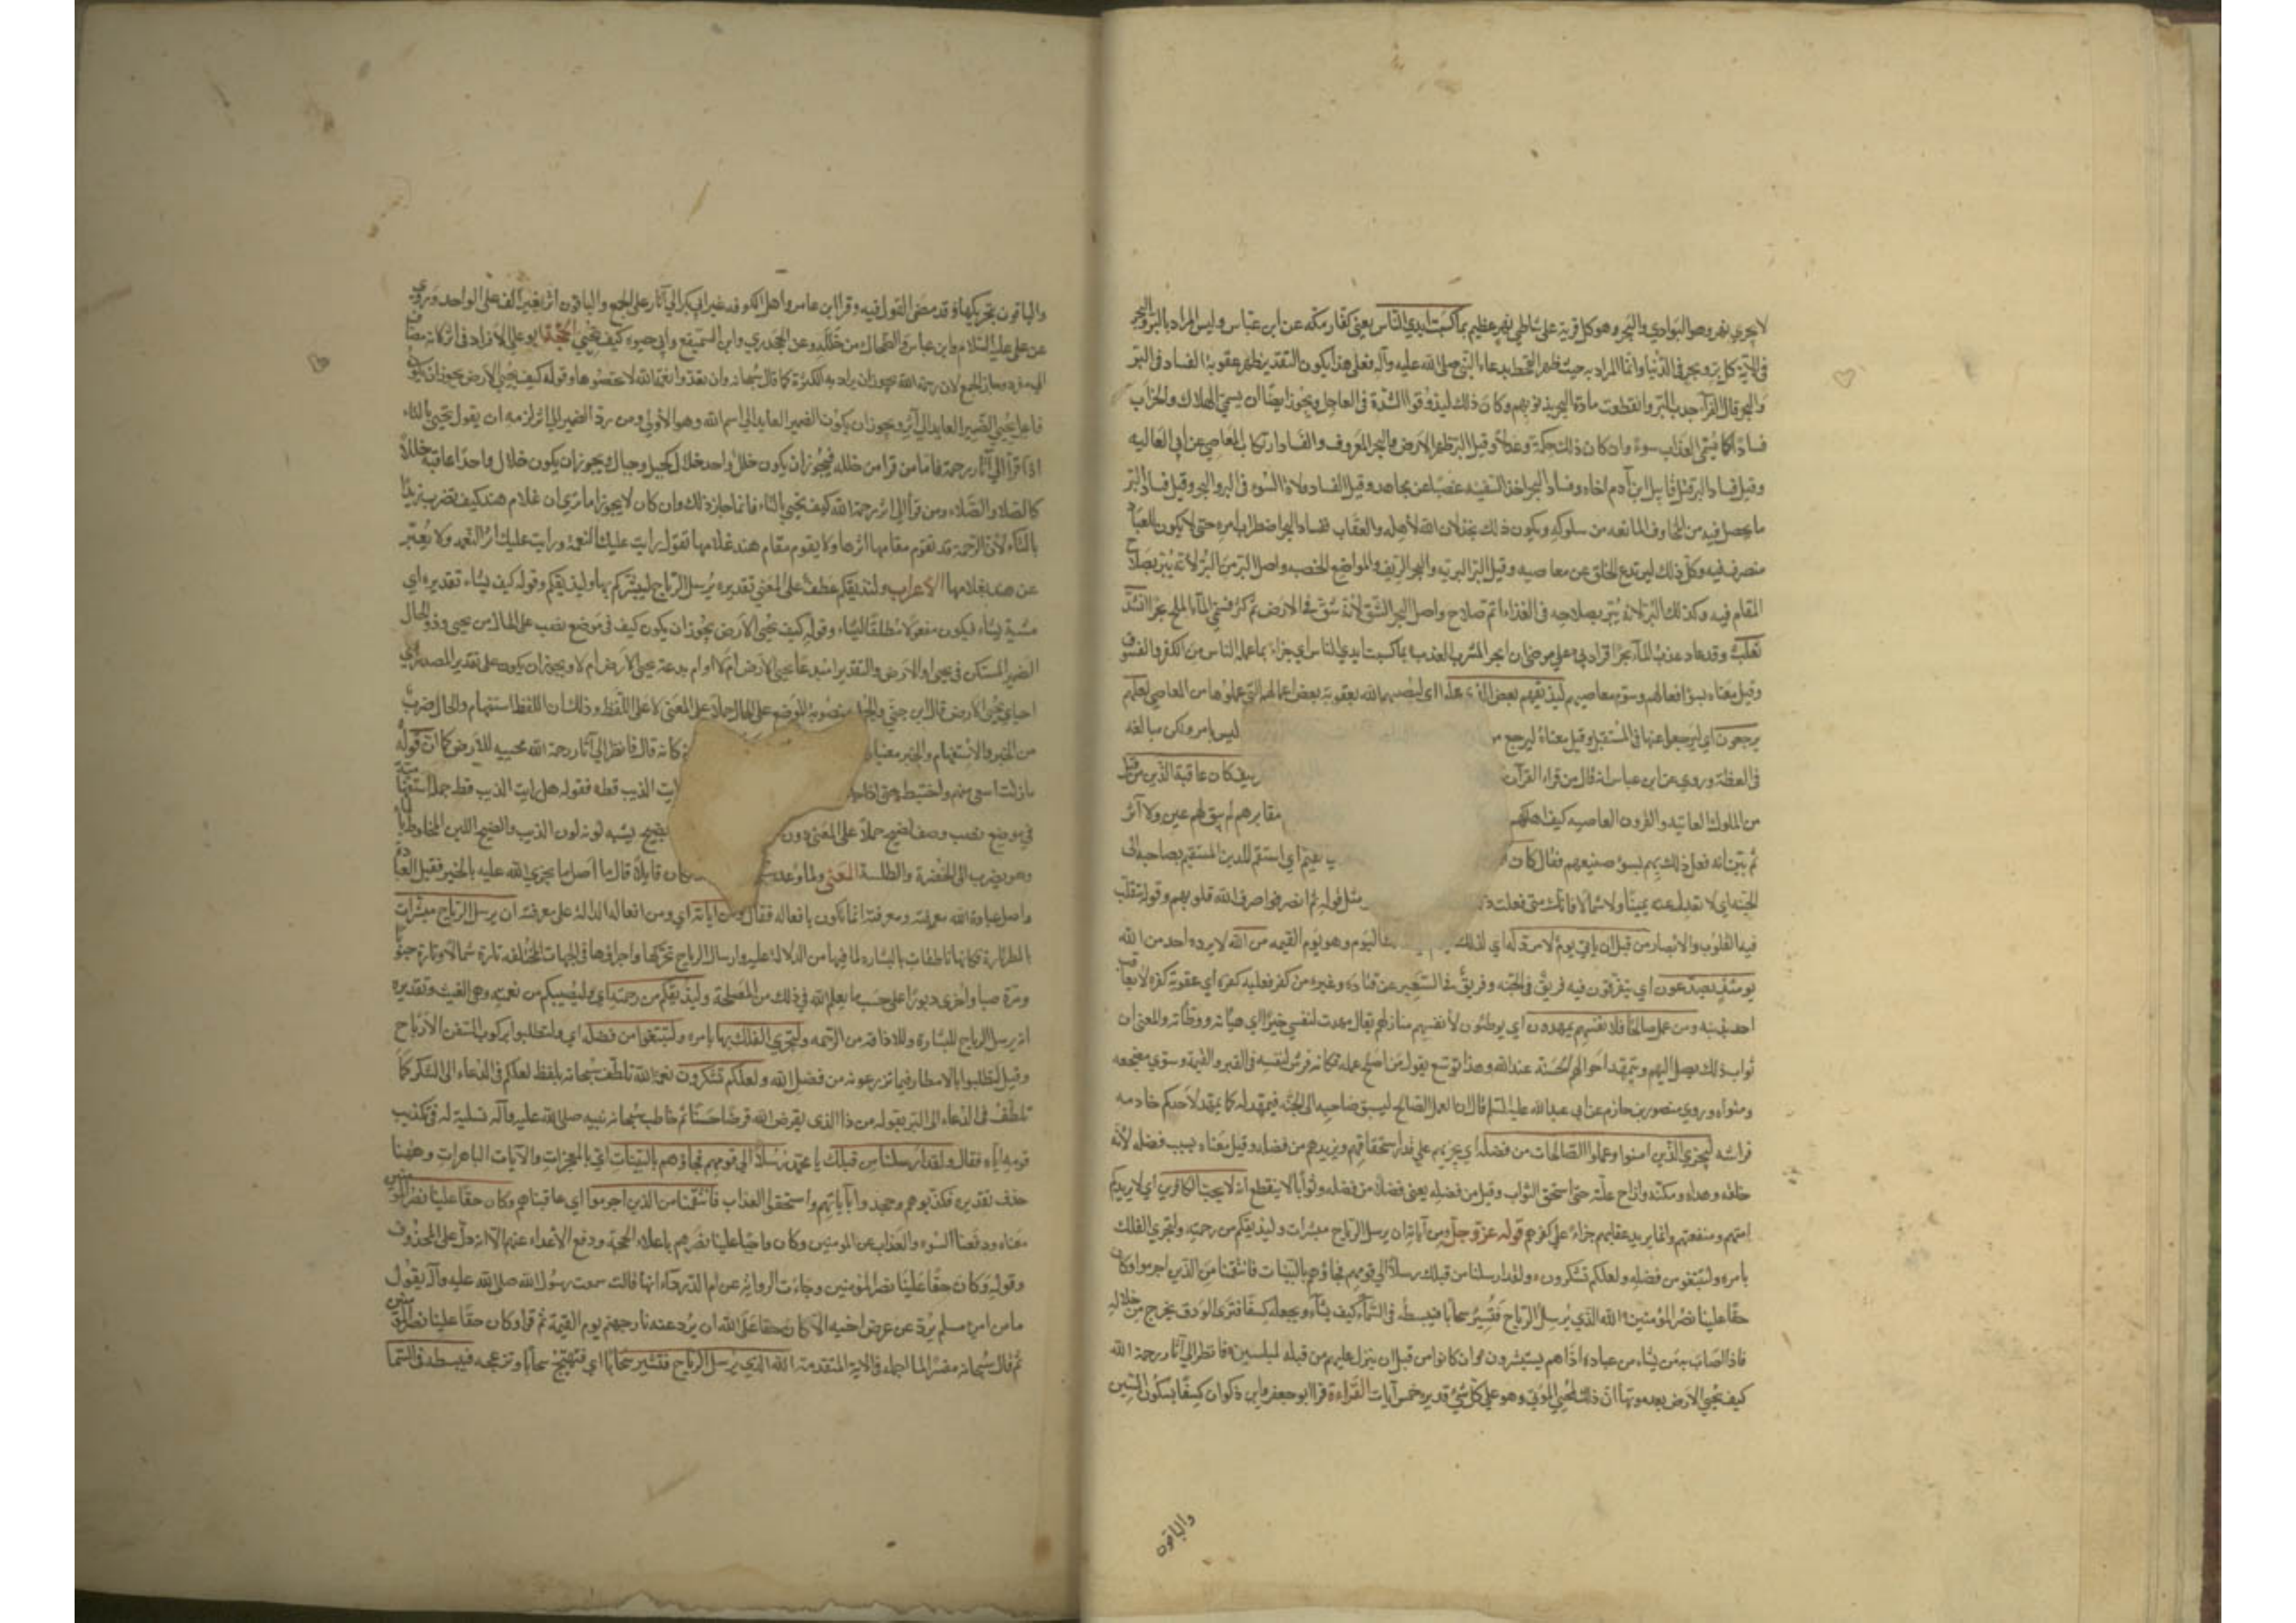 لا يجري نهر وهو البوادي والبحر وهو كل قرية على شاطئ نهر عظيم بما كسبت ايدي الناس يعني كفار مكة عن ابن عباس وليس المراد بالبر والبحر
في الآية كل بر وبحر في الدنيا وانما المراد به حيث ظهر القحط بدعاء النبي صلى الله عليه وآله فعلى هذا يكون التقدير ظهر عقوبة الفساد في البر
والبحر قال الفراء اجدب البر وانقطعت مادة البحر بذنوبهم وكان ذلك ليذوقوا الشدة في العاجل ويجوز ايضا ان يسمى الهلاك والخراب
فسادا كما يسمى العذاب سوءا وان كان ذلك حكمة وعدلا وقيل البر ظهر الارض والبحر المعروف والفساد ارتكاب المعاصي عن ابي العاليه
وقيل فساد البر قتل قابيل ابن آدم اخاه وفساد البحر اخذ السفينه غصبا عن مجاهد وقيل الفساد ولاة السوء في البر والبحر وقيل فساد البر
ما يحصل فيه من المخاوف المانعه من سلوكه ويكون ذلك بخذلان الله لأهله والعقاب به وفساد البحر اضطراب امره حتى لا يكون للعباد
متصرف فيه وكل ذلك ليرتدع الخلق عن معاصيه وقيل البر البريه والبحر الريف والمواضع الخصبه واصل البر من البر لأنه يبر بصلاح
المقام فيه وكذلك البر لانه يبر بصلاحه في الغذاء اتم صلاح واصل البحر الشق لأنه شق في الارض ثم كثر فسمي المآء الملح بحرا انشد
ثعلب وقد عاد عذب المآء بحرا فزادني على مرضي ان ابحر المشرب العذب بما كسبت ايدي الناس اي جزاء بما عمله الناس من الكفر والفسوق
وقيل معناه بسوء افعالهم وسوء معاصيهم ليذيقهم بعض الذي عملوا اي ليصيبهم الله بعقوبة بعض اعمالهم التي عملوها من المعاصي لعلهم
يرجعون اي ليرجعوا عنها في المستقبل وقيل معناه ليرجع من ليس بامر ولكن مبالغة
في العظة وروي عن ابن عباس انه قال من قراء القرآن كيف كان عاقبة الذين من قبل
من الملوك العاتيه والقرون العاصيه كيف اهلكهم مقابرهم لم يبق لهم عين ولا اثر
ثم بين انه فعل ذلك بهم بسوء صنيعهم فقال كان القيم اي استقم للدين المستقيم بصاحبه الى
الجنه اي لا تعدل عنه يمينا ولا شمالا فانك متى فعلت ذلك مثل قوله ثم انصرفوا صرف الله قلوبهم وقوله تتقلب
فيه القلوب والابصار من قبل ان يأتي يوم لا مرد له اي لذلك اليوم وهو يوم القيمه من الله لا يرده احد من الله
يومئذ يصدعون اي يتفرقون فيه فريق في الجنه وفريق في السعير عن قتاده وغيره من كفر فعليه كفره اي عقوبة كفره لا يعاقب
احد بذنبه ومن عمل صالحا فلا نفسهم يمهدون اي يوطئون لأنفسهم منازلهم يقال مهدت لنفسي خيرا اي هيأته ووطأته والمعنى ان
ثواب ذلك يصل اليهم ويتمهد احوالهم الحسنة عند الله وهذا توسع يقول من اصلح عمله فكانه فرش لنفسه في القبر والقيمه وسوى مضجعه
ومثواه وروى منصور بن حازم عن ابي عبد الله عليه السلم قال ان العمل الصالح ليسبق صاحبه الى الجنه فيمهد له كما يمهد لأحدكم خادمه
فراشه ليجزي الذين امنوا وعملوا الصالحات من فضله اي يجزيهم على قدر استحقاقهم ويزيدهم من فضله وقيل معناه بسبب فضله لأنه
خلقه وهداه ومكنه وازاح علته حتى استحق الثواب وقيل من فضله يعني فضلا من فضله وثوابا لا ينقطع انه لا يحب الكافرين اي لا يريدكم
امتهم ومنفعتهم وانما يريد عقابهم جزاء على كفرهم قوله عز وجل ومن آياته ان يرسل الرياح مبشرات وليذيقكم من رحمته ولتجري الفلك
بامره ولتبتغوا من فضله ولعلكم تشكرون ولقد ارسلنا من قبلك رسلا الى قومهم فجاؤهم بالبينات فانتقمنا من الذين اجرموا وكان
حقا علينا نصر المؤمنين الله الذي يرسل الرياح فتثير سحابا فيبسطه في السمآء كيف يشآء ويجعله كسفا فترى الودق يخرج من خلاله
فاذا اصاب به من يشاء من عباده اذا هم يستبشرون وان كانوا من قبل ان ينزل عليهم من قبله لمبلسين فانظر الى آثار رحمة الله
كيف يحيي الارض بعد موتها ان ذلك لمحيي الموتى وهو على كل شئ قدير خمس آيات القراءة قرا ابو جعفر وابن ذكوان كسفا بسكون السين
والباقون
والباقون بتحريكها وقد مضى القول فيه وقرا ابن عامر واهل الكوفه غير ابي بكر الى آثار على الجمع والباقون اثر بغير الف على الواحد وروي
عن علي عليه السلام وابن عباس والضحاك من خلله وعن الجحدري وابن السميفع وابي حيوه كيف تحيي الحجة ابو علي الافراد في اثر لانه مضاف
الى مفرد وجاز الجمع لان رحمة الله يجوز ان يراد به الكثرة كما قال سبحانه وان تعدوا نعمة الله لا تحصوها وقوله كيف يحيي الأرض يجوز ان يكون
فاعل يحيي الضمير العايد الى اثر ويجوز ان يكون الضمير العايد الى اسم الله وهو الأولى ومن رد الضمير الى اثر لزمه ان يقول تحيي بالتاء
اذا قرأ الى آثار رحمة فاما من قرا من خلله فيجوز ان يكون خلل واحد خلال كجبل وجبال ويجوز ان يكون خلال واحدا عاقب خللا
كالصلا والصلاء ومن قرأ الى اثر رحمة الله كيف تحيي بالتاء فانما جاز ذلك وان كان لا يجوز اما ترى ان غلام هند كيف تضرب زيدا
بالتاء لأن الرحمة قد تقوم مقامها اثرها ولا يقوم مقام هند غلامها تقول رايت عليك النعمة ورايت عليك اثر النعمه ولا يعبر
عن هند بغلامها الاعراب وليذيقكم عطف على المعنى تقديره يرسل الرياح ليبشركم بها وليذيقكم وقوله كيف يشاء تقديره اي
مشية يشاء فيكون مفعولا مطلقا ليشاء وقوله كيف يحيي الأرض يجوز ان يكون كيف في موضع نصب على الحال من يحيي وذو الحال
الضمير المستكن في يحيي او الارض والتقدير امبدعا يحيي الارض ام لا او امبدعة يحيي الارض ام لا ويجوز ان يكون على تقدير المصدر اي
احياء يحيي الأرض قال ابن جني والجملة منصوبة الموضع على الحال حملا على المعنى لا على اللفظ وذلك ان اللفظ استفهام والحال ضرب
من الخبر والاستفهام والخبر معنيان فكانه قال فانظر الى آثار رحمة الله محييه للارض كما ان قوله
ما زلت اسعى بينهم واختبط حتى اذا رايت الذيب قطه فقوله هل رايت الذيب قط جملة استفهامية
في موضع نصب وصف لضيح حملا على المعنى دون بضيح يشبه لونه لون الذيب والضيح اللبن المخلوط بالماء
وهو يضرب الى الخضرة والطلسة المعنى ولما وعد كان قايلا قال ما اصل ما يجزي الله عليه بالخير فقيل العبادة
واصل عبادة الله معرفته ومعرفته انما تكون بافعاله فقال ومن آياته اي ومن افعاله الدالة على معرفته ان يرسل الرياح مبشرات
بالمطر فكانها ناطقات بالبشاره لما فيها من الدلالة عليه وارسال الرياح تحريكها واجراؤها في الجهات المختلفه تارة شمالا وتارة جنوبا
ومرة صبا واخرى دبورا على حسب ما يعلم الله في ذلك من المصلحة وليذيقكم من رحمته اي وليصيبكم من نعمته وهي الغيث وتقديره
انه يرسل الرياح للبشارة وللاذاقة من الرحمه ولتجري الفلك بها بامره ولتبتغوا من فضله اي ولتطلبوا بركوب السفن الأرباح
وقيل لتطلبوا بالامطار فيما تزرعونه من فضل الله ولعلكم تشكرون نعمة الله تلطف سبحانه بلفظ لعلكم في الدعاء الى الشكر كما
تلطف في الدعاء الى البر بقوله من ذا الذي يقرض الله قرضا حسنا ثم خاطب سبحانه نبيه صلى الله عليه وآله تسلية له في تكذيب
قومه اياه فقال ولقد ارسلنا من قبلك يا محمد رسلا الى قومهم فجاؤهم بالبينات اي بالمعجزات والآيات الباهرات وههنا
حذف تقديره فكذبوهم وجحدوا بآياتهم واستحقوا العذاب فانتقمنا من الذين اجرموا اي عاقبناهم وكان حقا علينا نصر المؤمنين
معناه ودفعنا السوء والعذاب عن المومنين وكان واجبا علينا نصرهم باعلاء الحجة ودفع الأعداء عنهم الا انه دل على المحذوف
وقوله وكان حقا علينا نصر المؤمنين وجاءت الرواية عن ام الدرداء انها قالت سمعت رسول الله صلى الله عليه وآله يقول
ما من امرء مسلم يرد عن عرض اخيه الا كان حقا على الله ان يرد عنه نار جهنم يوم القيمة ثم قرا وكان حقا علينا نصر المؤمنين
ثم قال سبحانه مفسرا لما اجمله في الاية المتقدمة الله الذي يرسل الرياح فتثير سحابا اي فتهيج سحابا وتزعجه فيبسطه في السمآء